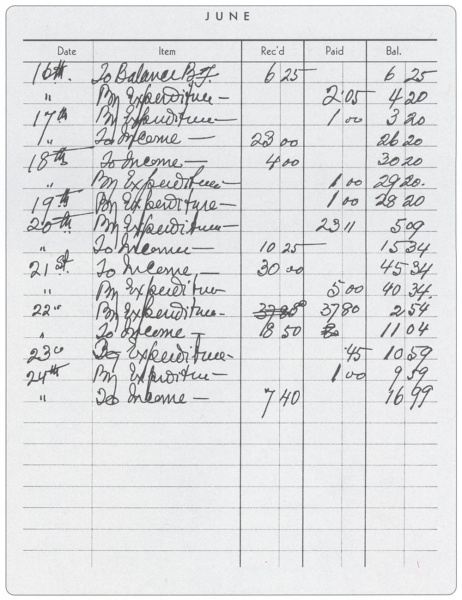 JUNE
Date Item Rec'd Paid Bal.
16th. To Balance B.F. 6 25 6 25
" By Expenditure — 2.05 4 20
17th By Expenditure — 1 00 3 20
" To Income — 23 00 26 20
18th To Income — 4 00 30 20
" By Expenditure — 1 00 29 20.
19th By Expenditure — 1 00 28 20
20th By Expenditure — 23 11 5 09
" To Income — 10 25 15 34
21st. To Income — 30 00 45 34
" By Expenditure 5 00 40 34.
22" By Expenditure — 37 80 2 54
" To Income — 8 50 11 04
23" By Expenditure — 45 10 59
24th By Expenditure — 1 00 9 59
" To Income — 7 40 16 99